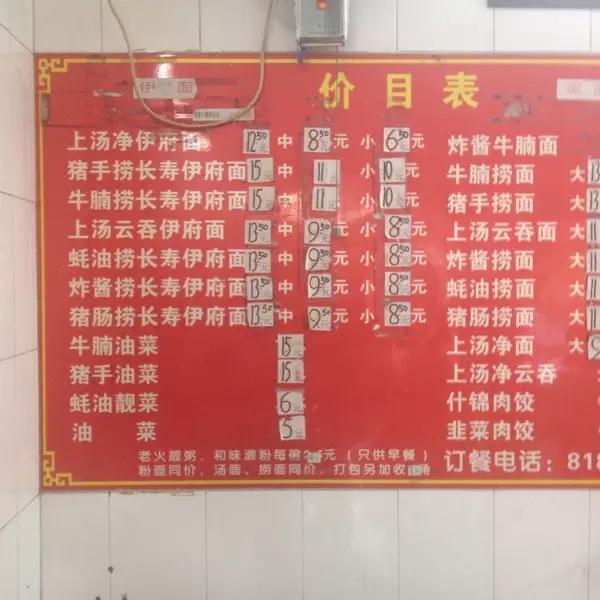 价目表
伊面
上汤净伊府面 12.50元 中 8.50元 小 6.50元
猪手捞长寿伊府面 15元 中 11元 小 10元
牛腩捞长寿伊府面 15元 中 11元 小 10元
上汤云吞伊府面 13.50元 中 9.50元 小 8.50元
蚝油捞长寿伊府面 13.50元 中 9.50元 小 8.50元
炸酱捞长寿伊府面 13.50元 中 9.50元 小 8.50元
猪肠捞长寿伊府面 13.50元 中 9.50元 小 8.50元
牛腩油菜 15元
猪手油菜 15元
蚝油靓菜 6元
油菜 5元
炸酱牛腩面
牛腩捞面 大 13
猪手捞面 大 13
上汤云吞面 大 11
炸酱捞面 大 11
蚝油捞面 大 11
猪肠捞面 大 11
上汤净面 大 9
上汤净云吞
什锦肉饺
韭菜肉饺
老火靓粥、和味濑粉每碗元（只供早餐）
粉面同价、汤面、捞面同价，打包另加收
订餐电话：818